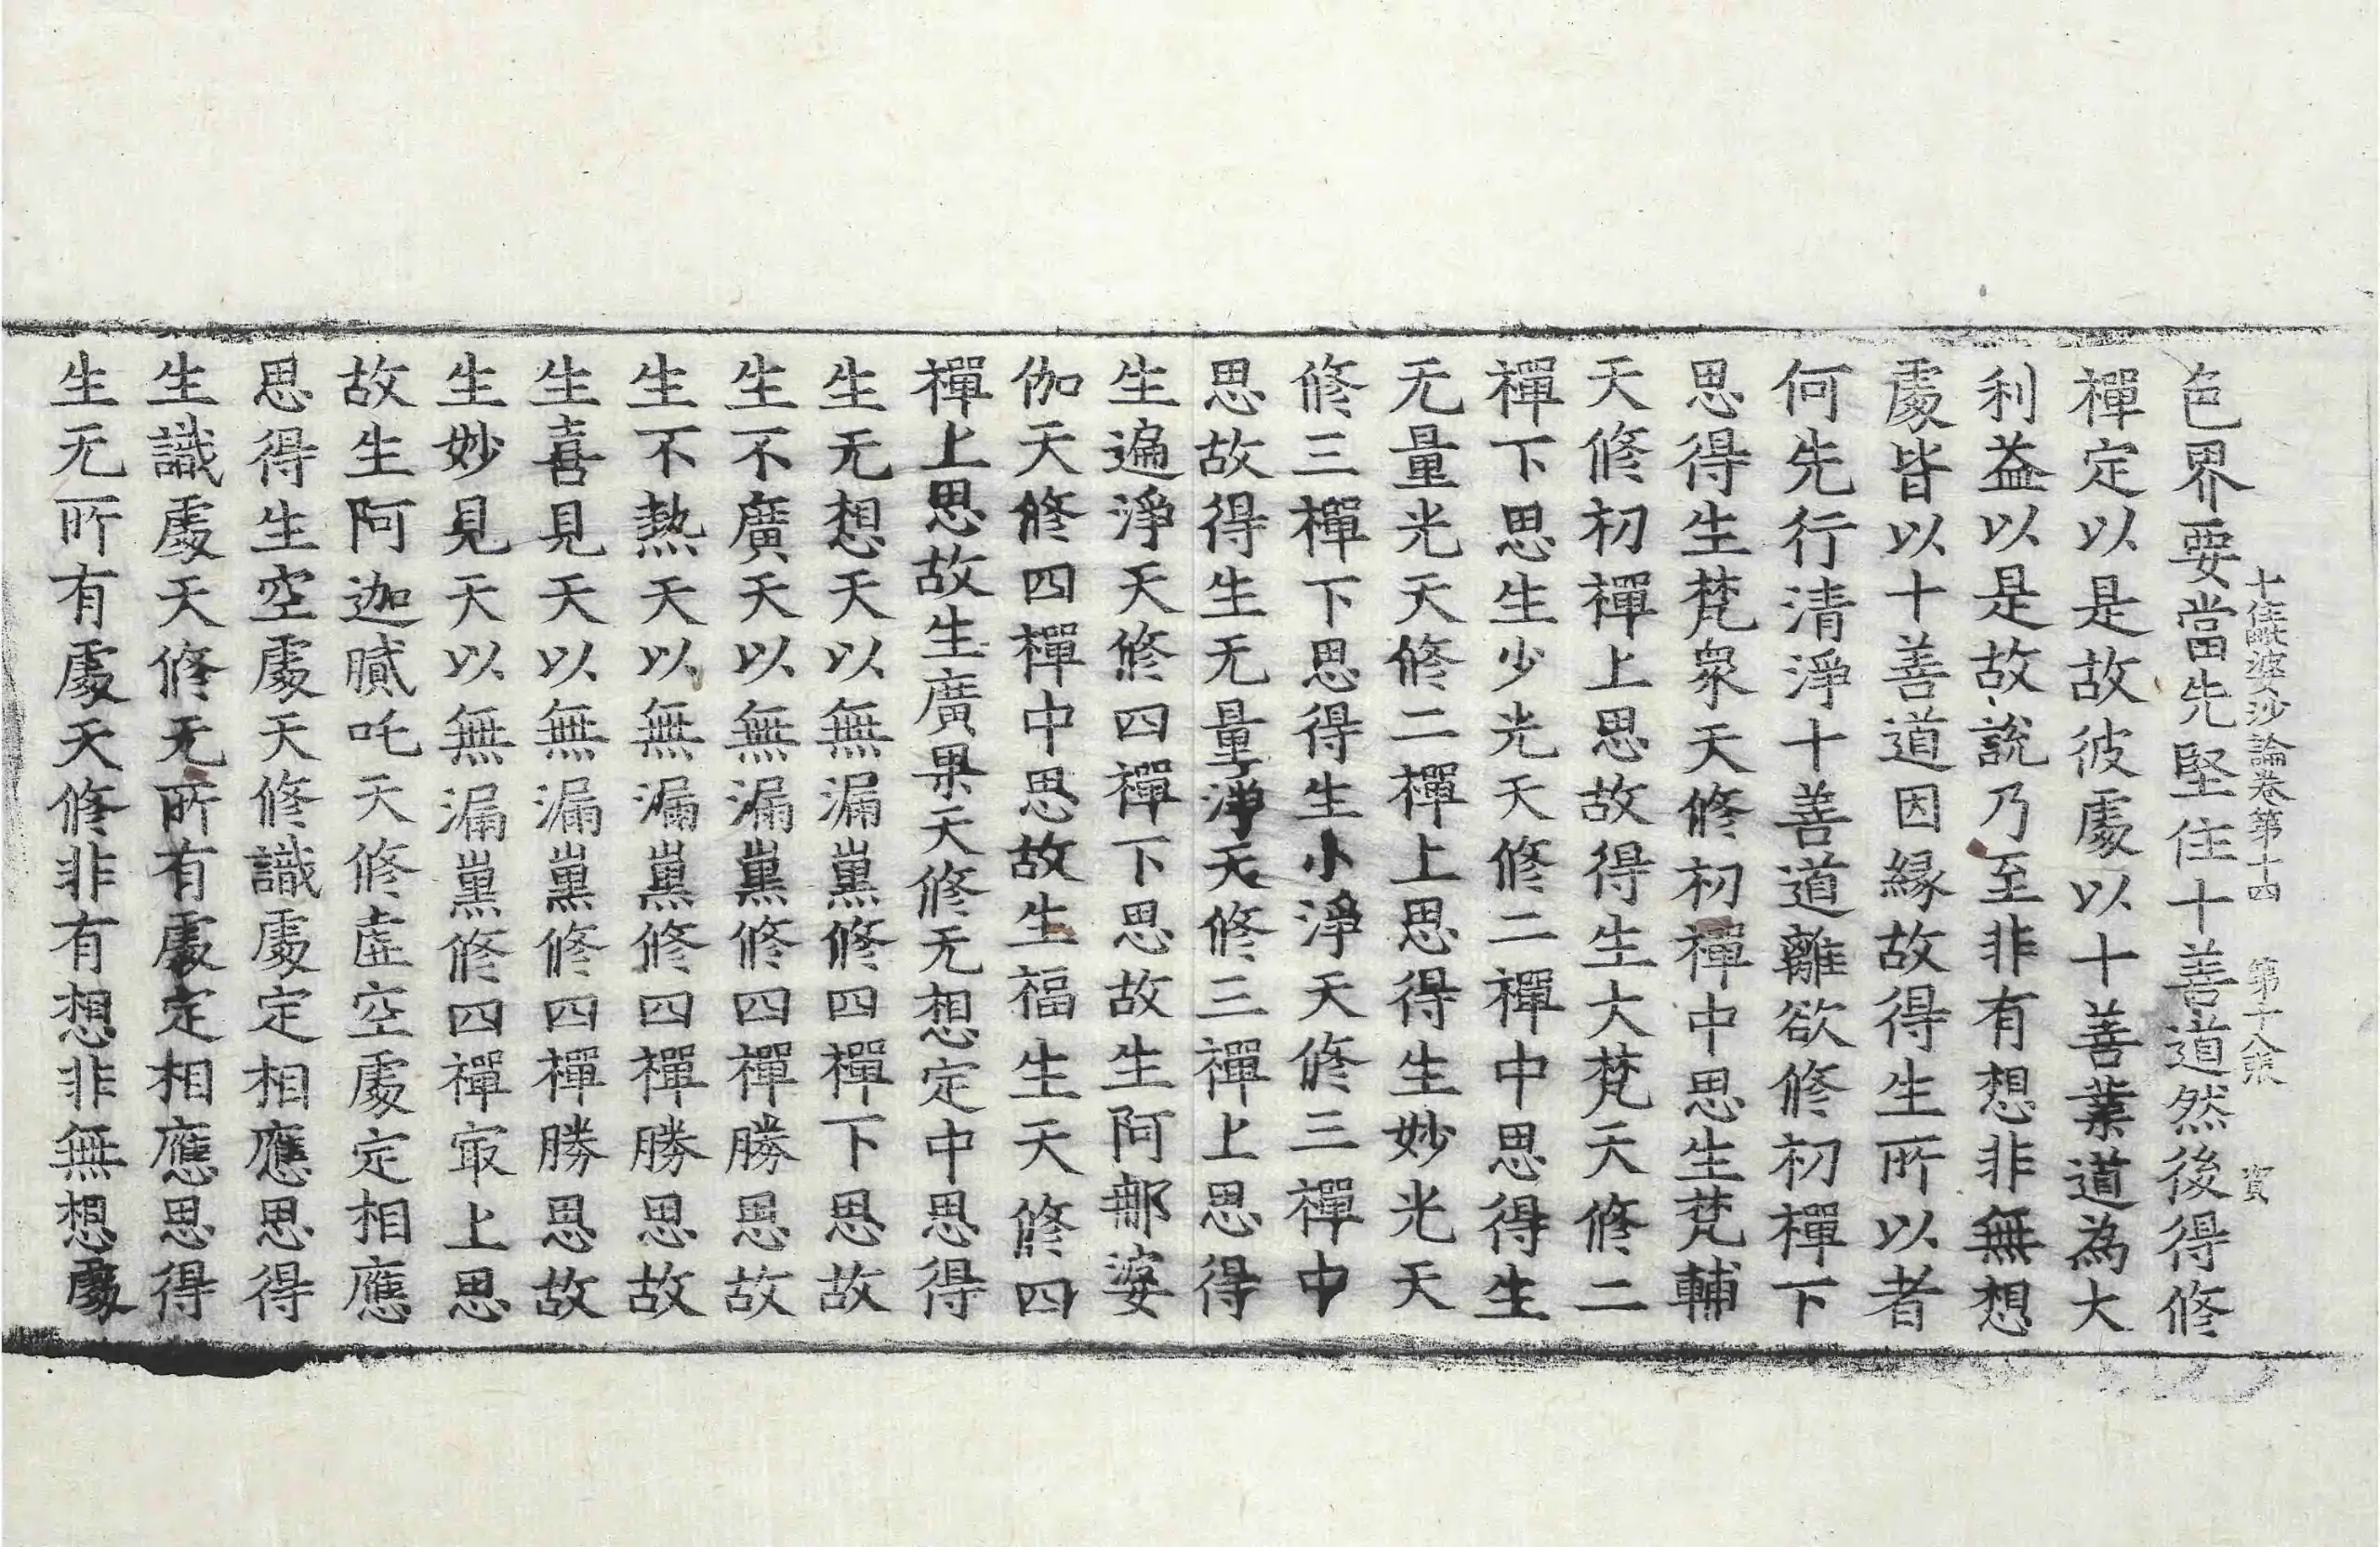 十住毗婆沙論卷第十四 第十八張 賓
色界要當先堅住十善道然後得修
禪定以是故彼處以十善業道為大
利益以是故說乃至非有想非無想
處皆以十善道因緣故得生所以者
何先行清淨十善道離欲修初禪下
思得生梵衆天修初禪中思生梵輔
天修初禪上思故得生大梵天修二
禪下思生少光天修二禪中思得生
无量光天修二禪上思得生妙光天
修三禪下思得生小淨天修三禪中
思故得生无量淨天修三禪上思得
生遍淨天修四禪下思故生阿那婆
伽天修四禪中思故生福生天修四
禪上思故生廣果天修无想定中思得
生无想天以無漏熏修四禪下思故
生不廣天以無漏熏修四禪勝思故
生不熱天以無漏熏修四禪勝思故
生喜見天以無漏熏修四禪勝思故
生妙見天以無漏熏修四禪㝡上思
故生阿迦膩吒天修虛空處定相應
思得生空處天修識處定相應思得
生識處天修无所有處定相應思得
生无所有處天修非有想非無想處